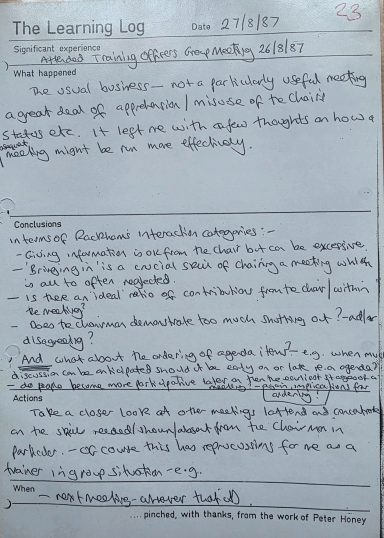 23
The Learning Log Date 27/8/87
Significant experience
Attended Training Officers Group Meeting 26/8/87
What happened
The usual business — not a particularly useful meeting
a great deal of apprehension / misuse of the Chair's
status etc. It left me with a few thoughts on how a
meeting might be run more effectively.
Conclusions
in terms of Rackham's interaction categories :-
- Giving information is ok from the chair but can be excessive.
- 'Bringing in' is a crucial skill of chairing a meeting which
is all to often neglected.
- Is there an 'ideal' ratio of contribution from the chair / within
the meeting?
- Does the chairman demonstrate too much shutting out? - and/or
disagreeing?
And what about the ordering of agenda items? - e.g. when much
discussion can be anticipated should it be early on or late ie. agenda?
- do people become more participative later on than the earliest stages of a
meeting - again, implications for
ordering!
Actions
Take a closer look at other meetings I attend and concentrate
on the skills needed/shown/absent from the chairman in
particular. - Of course this has reprocussions for me as a
trainer in group situation - e.g.
When
- next meeting - whenever that is
.... pinched, with thanks, from the work of Peter Honey